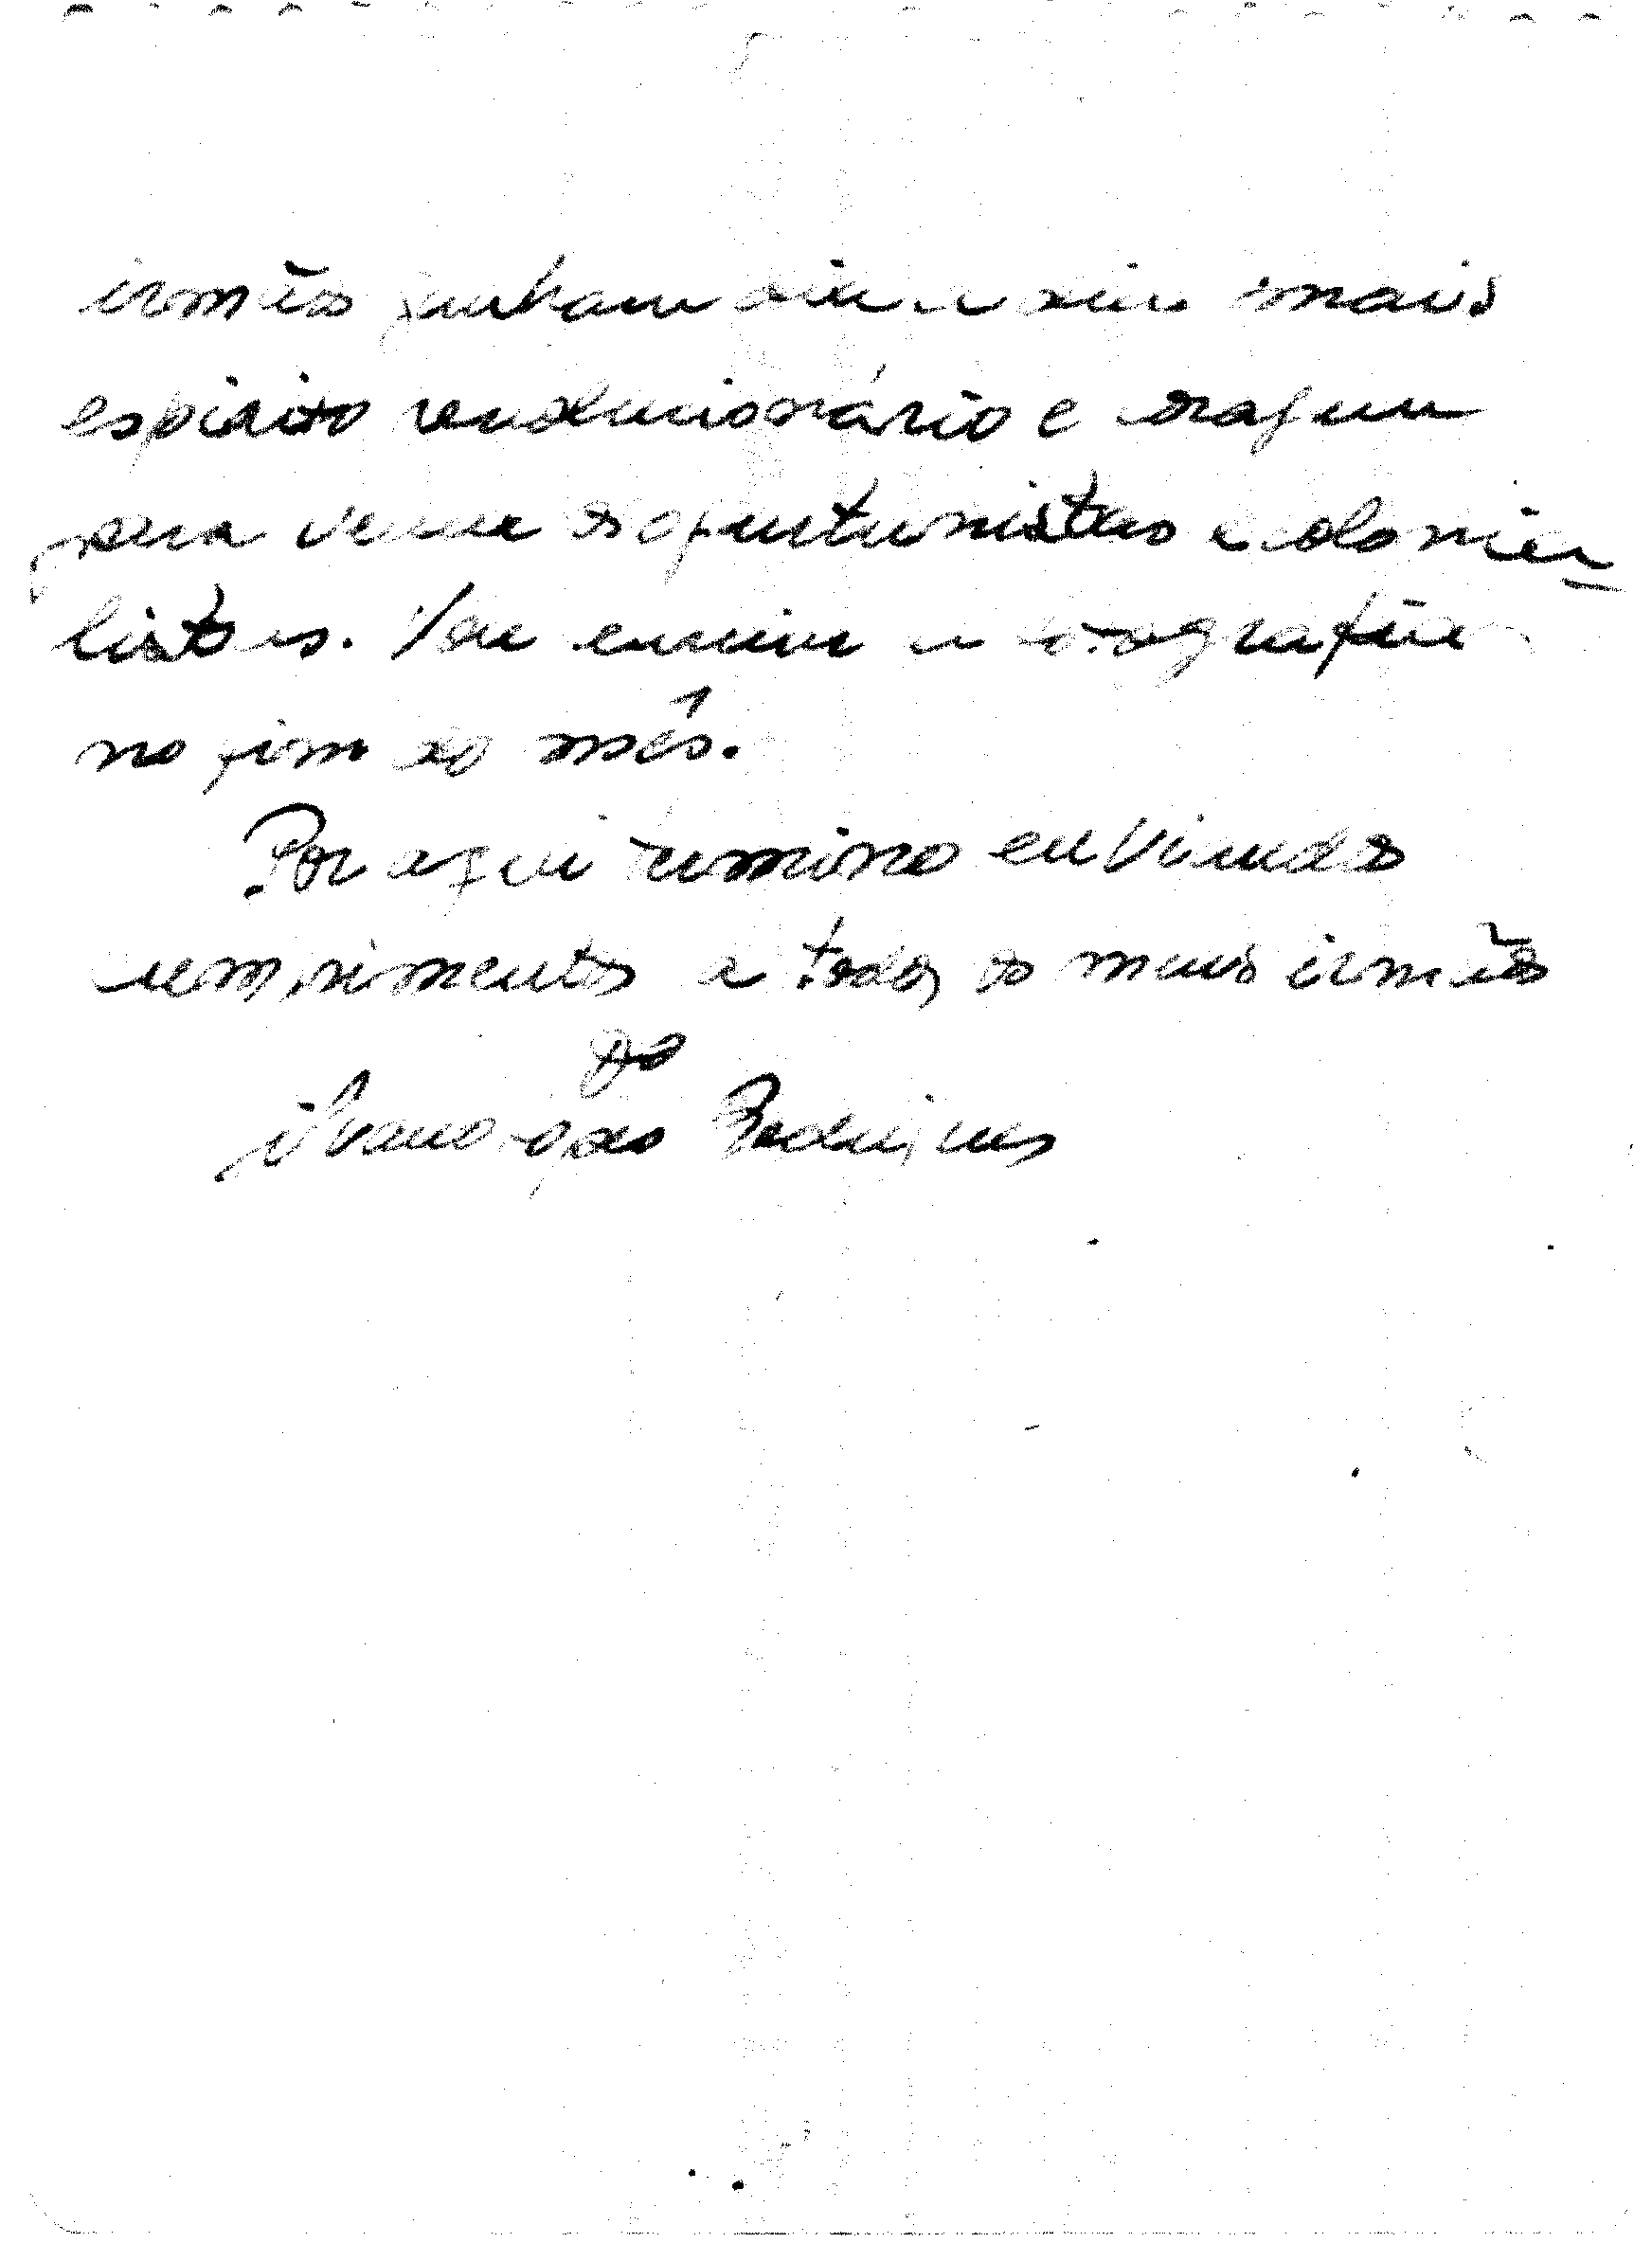 irmãos tenham dia a dia mais
espírito revolucionário e coragem
para vencer os oportunistas e colonia-
listas. Vou enviar a fotografia
no fim do mês.
Por aqui termino enviando
cumprimentos a todos os meus irmãos
do
Rodrigues